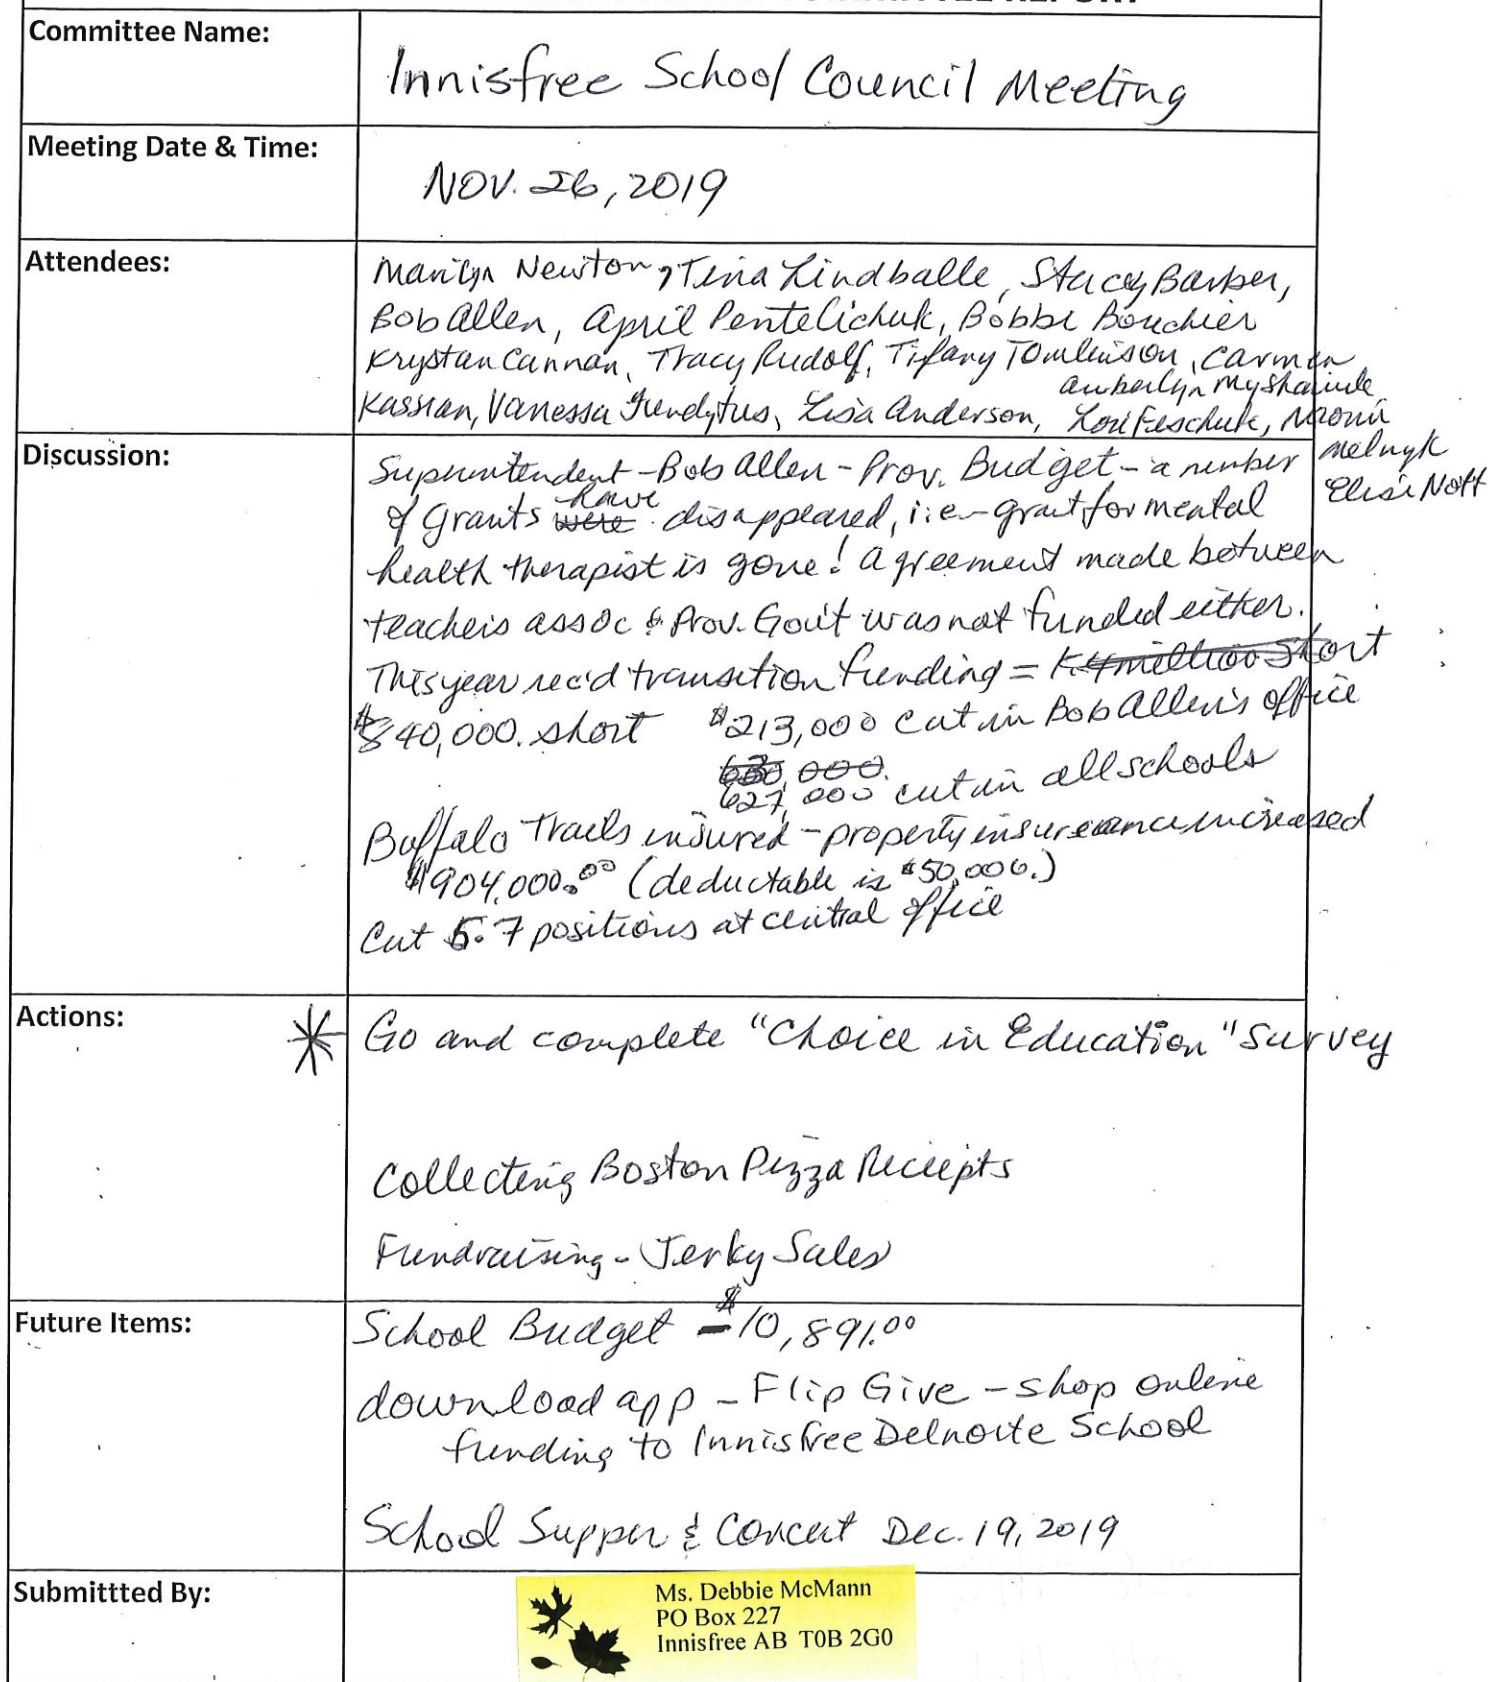 Committee Name:
Innisfree School Council Meeting
Meeting Date & Time:
NOV. 26, 2019
Attendees:
Marilyn Newton, Tina Lindballe, Stacey Barber,
Bob Allen, April Pentelichuk, Bobbi Bouchier
Krystan Cannan, Tracy Rudolf, Tifany Tomlinson, Carmen
Kassian, Vanessa, Lisa Anderson, Lori Feschuk, Naomi
Melnyk
Elise Nott
Discussion:
Superintendent - Bob Allen - Prov. Budget - a number
of grants were have disappeared, i.e. - grant for mental
health therapist is gone! Agreement made between
teachers assoc & Prov. Gov't was not funded either.
This year rec'd transition funding = 1.4 million short
$840,000. short $213,000 cut in Bob Allen's office
630,000.
627,000 cut in all schools
Buffalo Trails insured - property insurance increased
$904,000.00 (deductable is $50,000.)
Cut 5.7 positions at central office
Actions:
* Go and complete "Choice in Education" Survey
Collecting Boston Pizza Reciepts
Fundraising - Jerky Sales
Future Items:
School Budget - $10,891.00
download app - Flip Give - shop online
funding to Innisfree Delnorte School
School Supper & Concert Dec. 19, 2019
Submittted By:
Ms. Debbie McMann
PO Box 227
Innisfree AB T0B 2G0